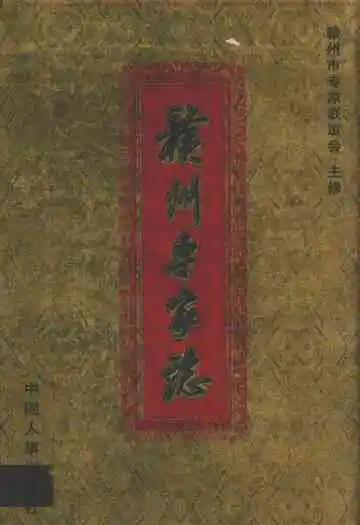 赣州市专家联谊会 主修
赣州专家誌
中国人事